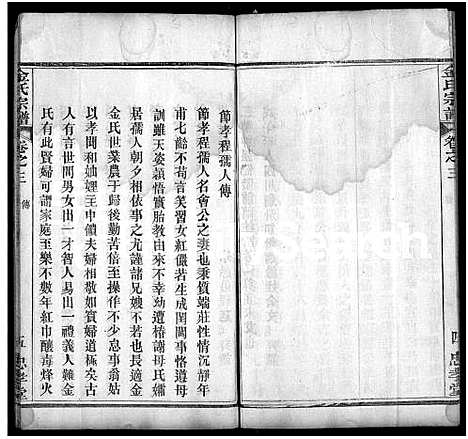 金氏宗譜
卷之三
節孝程孺人傳
節孝程孺人名會公之妻也秉質端莊性情沉靜年
甫七齡不苟言笑習女紅儼若生成閨閫事恪遵母
訓雖天姿穎悟實胎教由來不幸幼遭椿謝母氏孀
居孺人朝夕相依事之尤謹諸兄嫂不若也長適金
金氏世業農于歸後勤苦倍至操作不少息事翁姑
以孝聞和妯娌王中饋夫婦相敬如賓婦道極矣古
人有言世間男女出一才智人易出一禮義人難金
氏有此賢婦可謂家庭至樂不數年紅巾釀毒烽火
傳
忠孝堂
金氏宗譜
卷之三
忠孝堂